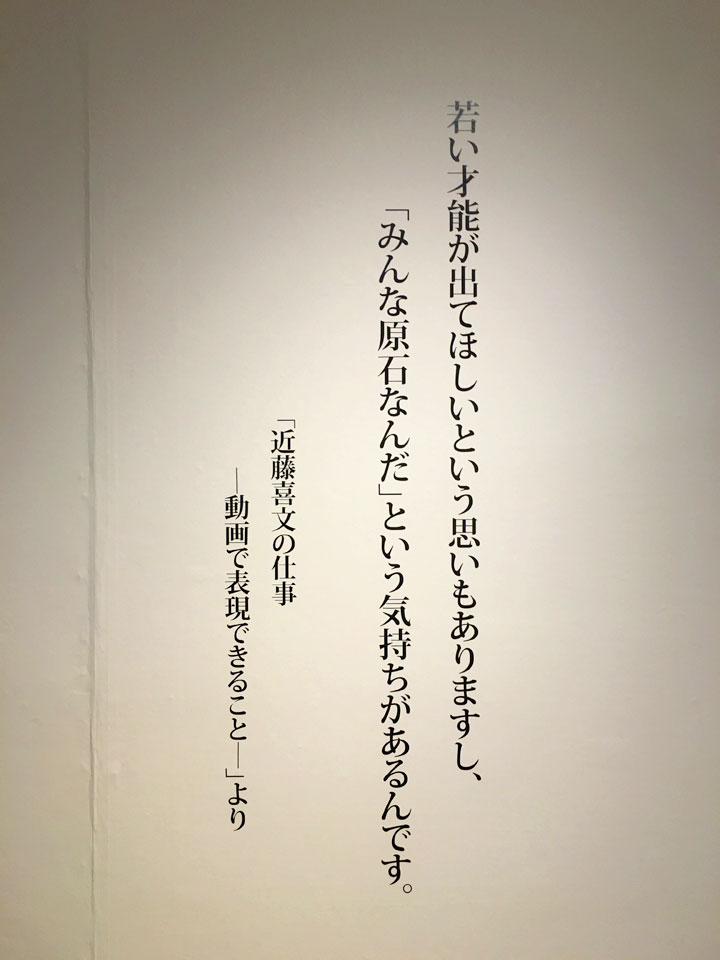 若い才能が出てほしいという思いもありますし、
「みんな原石なんだ」という気持ちがあるんです。
「近藤喜文の仕事
―動画で表現できること―」より